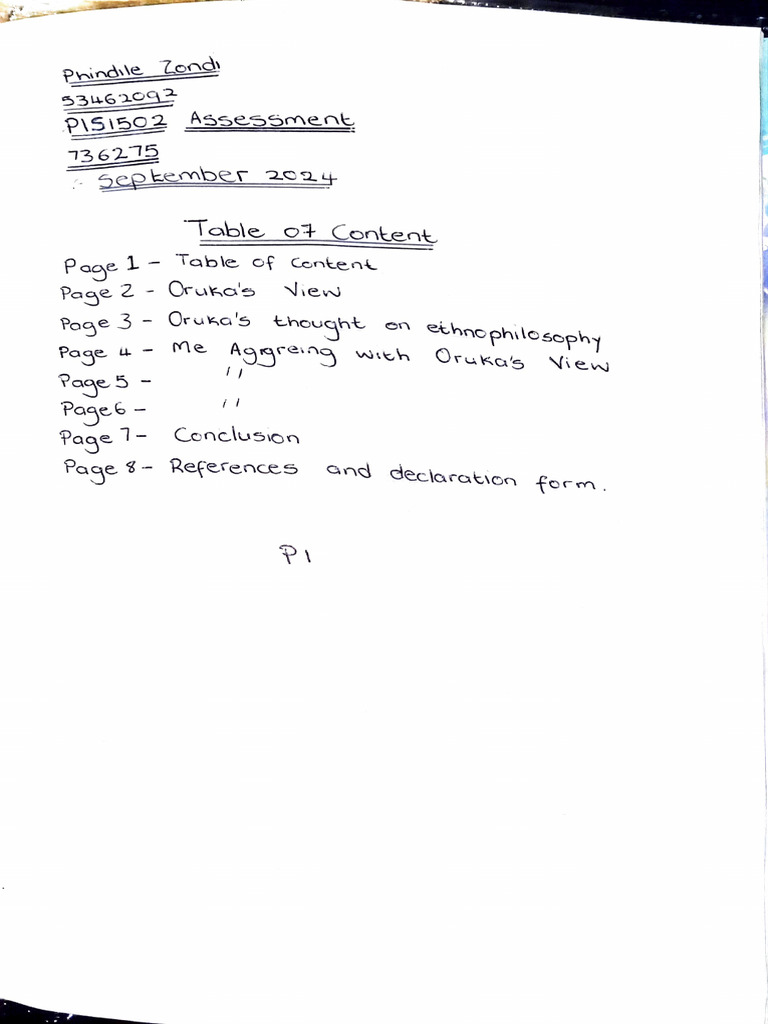 Phindile Zondi
53462092
PIS1502 Assessment
736275
September 2024
Table of Content
Page 1 - Table of Content
Page 2 - Oruka's View
Page 3 - Oruka's thought on ethnophilosophy
Page 4 - Me Aggreing with Oruka's View
Page 5 - "
Page 6 - "
Page 7 - Conclusion
Page 8 - References and declaration form.
P1